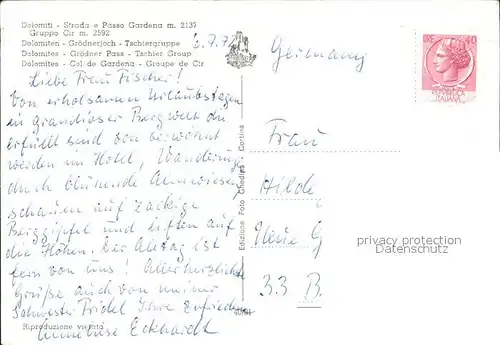 Dolomiti - Strada e Passo Gardena m. 2137
Gruppo Cir m. 2592
Dolomiten - Grödnerjoch - Tschiergruppe
Dolomites - Grödner Pass - Tschier Group
Dolomites - Col de Gardena - Groupe de Cir
Germany
LIRE 40
Liebe Frau Fischer!
Von erholsamen Urlaubstagen
in grandioser Bergwelt die
erfüllt sind von verwöhnt
werden im Hotel, Wanderung
durch blühende Almwiesen,
schauen auf zackige
Berggipfel und liften auf
die Höhen. Der Alltag ist
fern von uns! Allerherzliche
Grüße auch von meiner
Schwester Fridel Ihre zufriedene
Anneliese Eckhardt
Edizione Foto Ghedina - Cortina
Frau
Hilde
Neue G
33 B
privacy protection
Datenschutz
Riproduzione vietata